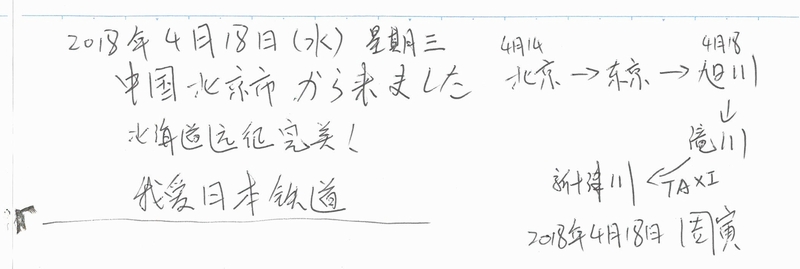 2018年4月18日(水) 星期三
中国北京市から来ました
北海道远征完美!
我爱日本铁道
4月14 4月18
北京→东京→旭川
↓
滝川
新十津川←TAXI
2018年4月18日 周寅